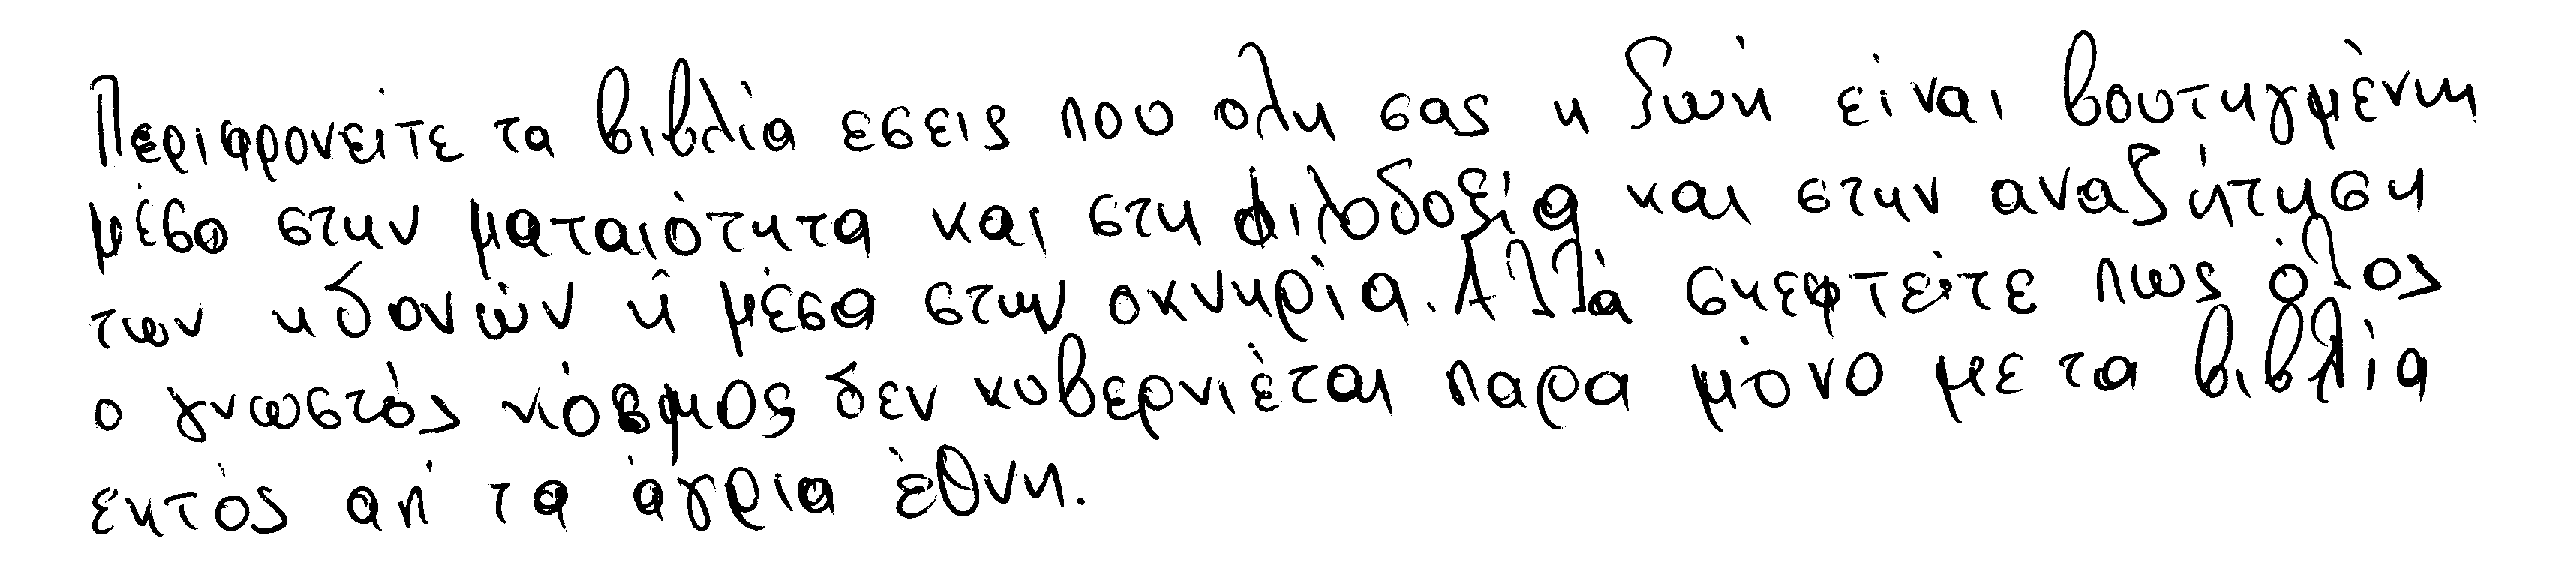 Περιφρονείτε τα βιβλία εσεις που ολη σας η ζωή είναι βουτηγμένη
μέσα στην ματαιότητα και στη φιλοδοξία και στην αναζήτηση
των ηδονών ή μέσα στην οκνηρία. Αλλά σκεφτείτε πως όλος
ο γνωστός κόσμος δεν κυβερνιέται παρα μόνο με τα βιβλία
εκτός απ' τα άγρια έθνη.